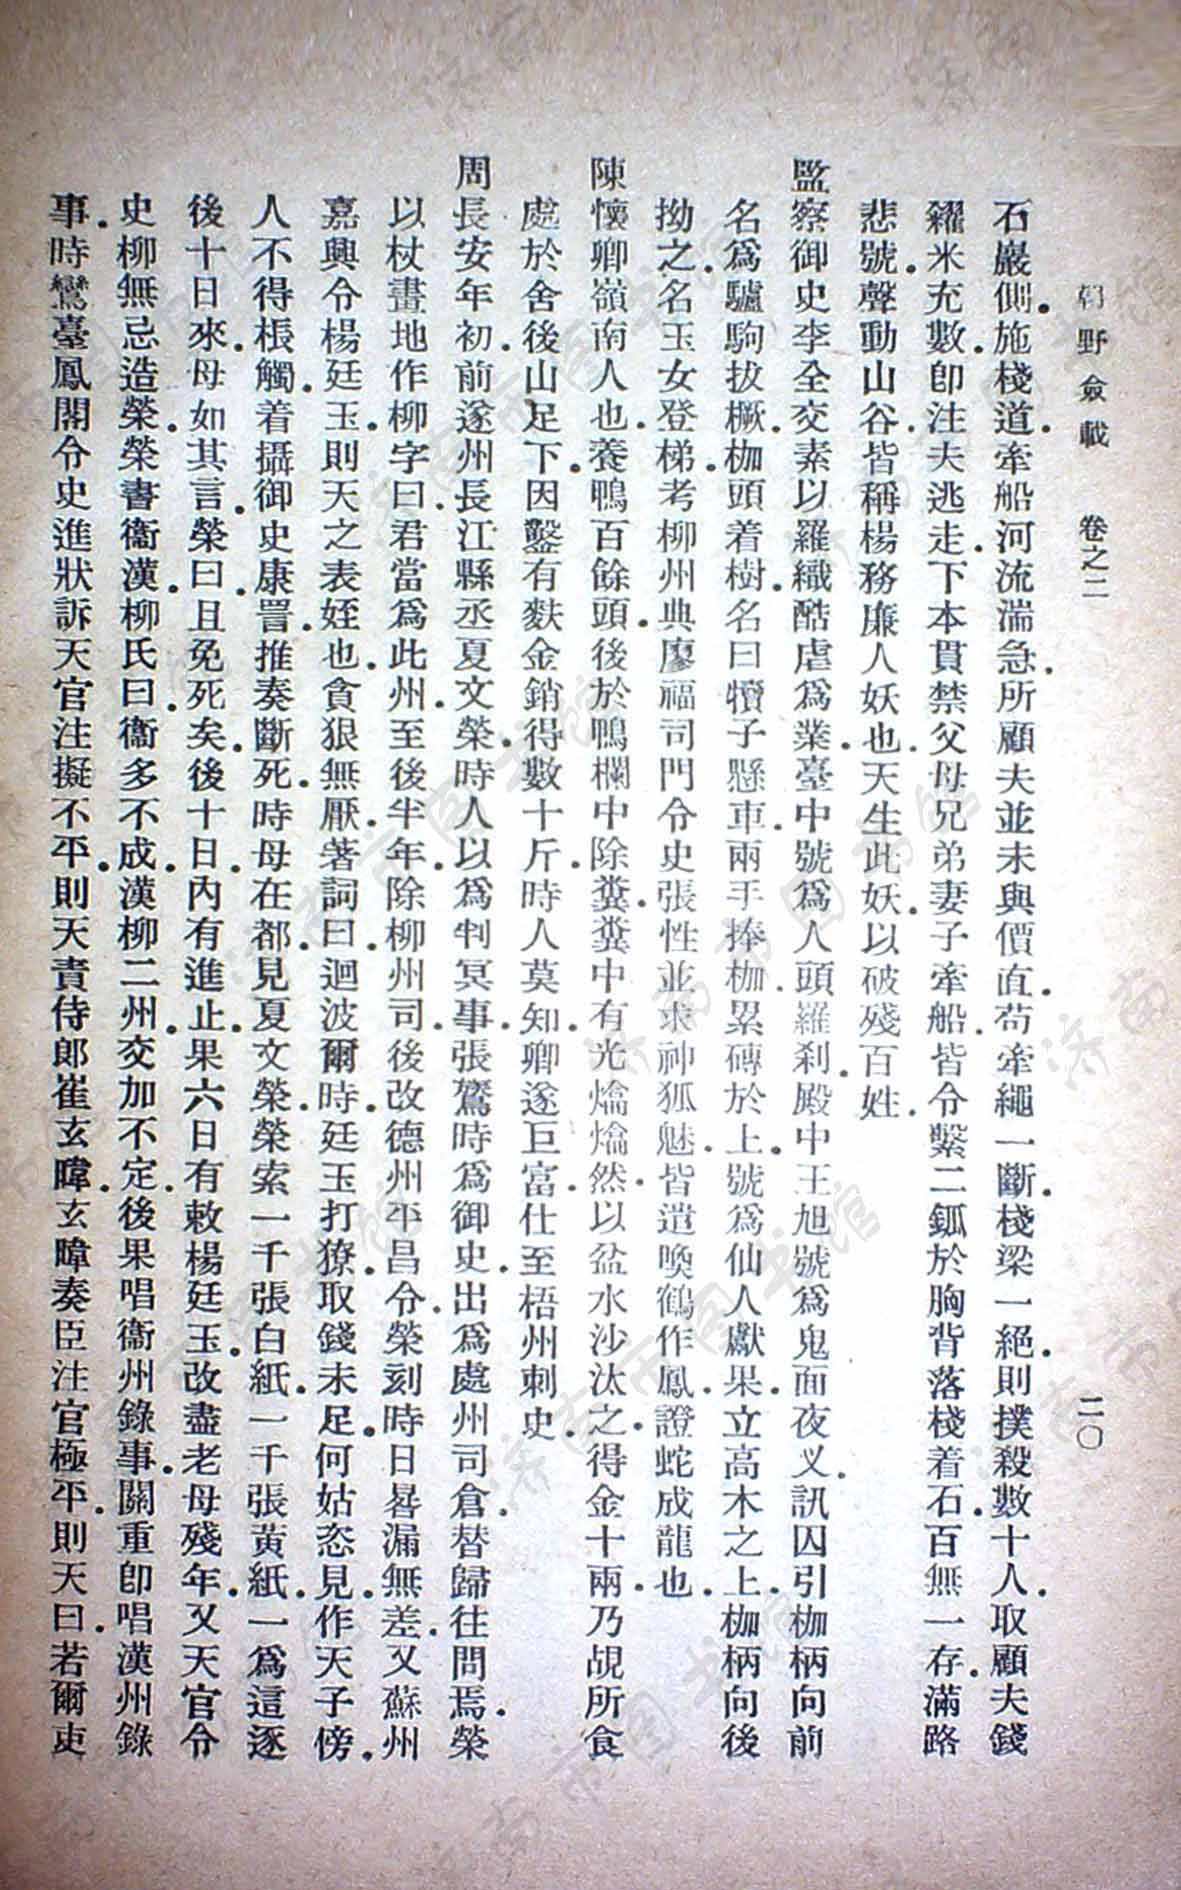 朝野僉載 卷之二 二〇
石巖側.施棧道.牽船河流湍急.所顧夫並未與價直.苟牽繩一斷.棧梁一絕.則撲殺數十人.取顧夫錢
糴米充數.卽注夫逃走.下本貫禁父母兄弟妻子牽船.皆令繫二鈲於胸背落棧着石.百無一存.滿路
悲號.聲動山谷.皆稱楊務廉人妖也.天生此妖.以破殘百姓.
監察御史李全交素以羅織酷虐爲業.臺中號爲人頭羅刹.殿中王旭號爲鬼面夜叉.訊囚引枷柄向前
名爲驢駒拔橛.枷頭着樹.名曰犢子懸車.兩手捧枷.累磚於上.號爲仙人獻果.立高木之上.枷柄向後
拗之.名玉女登梯.考柳州典廖福司門令史張性.並求神狐魅.皆遣喚鶴作鳳.證蛇成龍也.
陳懷卿嶺南人也.養鴨百餘頭.後於鴨欄中除糞.糞中有光爚爚然.以盆水沙汰之.得金十兩.乃覘所食
處於舍後山足下.因鑿有麩金.銷得數十斤.時人莫知.卿遂巨富.仕至梧州刺史.
周長安年初.前遂州長江縣丞夏文榮.時人以爲判冥事.張鷟時爲御史.出爲處州司倉.替歸往問焉.榮
以杖畫地作柳字曰.君當爲此州.至後半年.除柳州司.後改德州平昌令.榮刻時日晷漏無差.又蘇州
嘉興令楊廷玉.則天之表姪也.貪狠無厭.著詞曰.迴波爾時.廷玉打獠.取錢未足.何姑恣見.作天子傍.
人不得棖觸.着攝御史康訔.推奏斷死.時母在都.見夏文榮.榮索一千張白紙.一千張黃紙.一爲這逐
後十日來.母如其言.榮曰.且免死矣.後十日.內有進止.果六日有敕楊廷玉.改盡老母殘年.又天官令
史柳無忌造榮.榮書衞漢.柳氏曰.衞多不成.漢柳二州.交加不定.後果唱衞州錄事.關重卽唱漢州錄
事.時鸞臺鳳閣令史進狀訴天官注擬不平.則天責侍郎崔玄暐.玄暐奏臣注官極平.則天曰.若爾吏